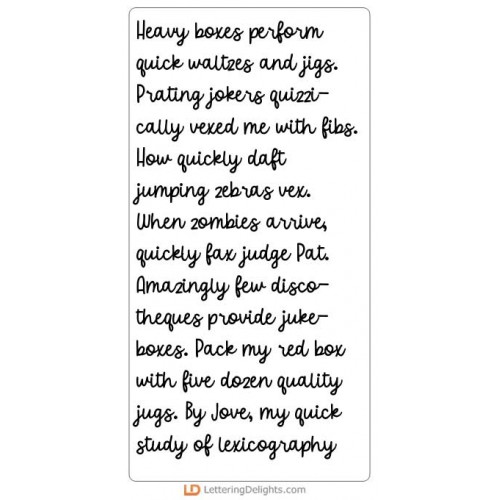 Heavy boxes perform
quick waltzes and jigs.
Prating jokers quizzi-
cally vexed me with fibs.
How quickly daft
jumping zebras vex.
When zombies arrive,
quickly fax judge Pat.
Amazingly few disco-
theques provide juke-
boxes. Pack my red box
with five dozen quality
jugs. By Jove, my quick
study of lexicography
LD LetteringDelights.com